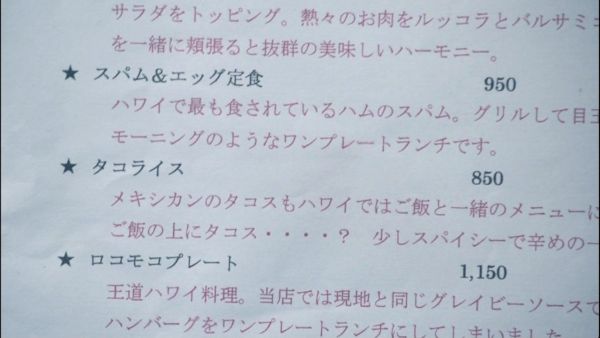 サラダをトッピング。熱々のお肉をルッコラとバルサミコ
を一緒に頬張ると抜群の美味しいハーモニー。
★ スパム＆エッグ定食 950
ハワイで最も食されているハムのスパム。グリルして目玉
モーニングのようなワンプレートランチです。
★ タコライス 850
メキシカンのタコスもハワイではご飯と一緒のメニューに
ご飯の上にタコス・・・・？ 少しスパイシーで辛めの一
★ ロコモコプレート 1,150
王道ハワイ料理。当店では現地と同じグレイビーソースで
ハンバーグをワンプレートランチにしてしまいました